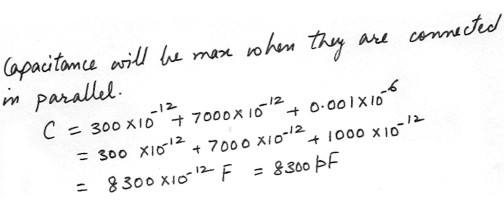 Capacitance will be max when they are connected
in parallel.
C = 300 x10⁻¹² + 7000 x 10⁻¹² + 0.001 x 10⁻⁶
= 300 x10⁻¹² + 7000 x10⁻¹² + 1000 x 10⁻¹²
= 8300 x10⁻¹² F = 8300 pF